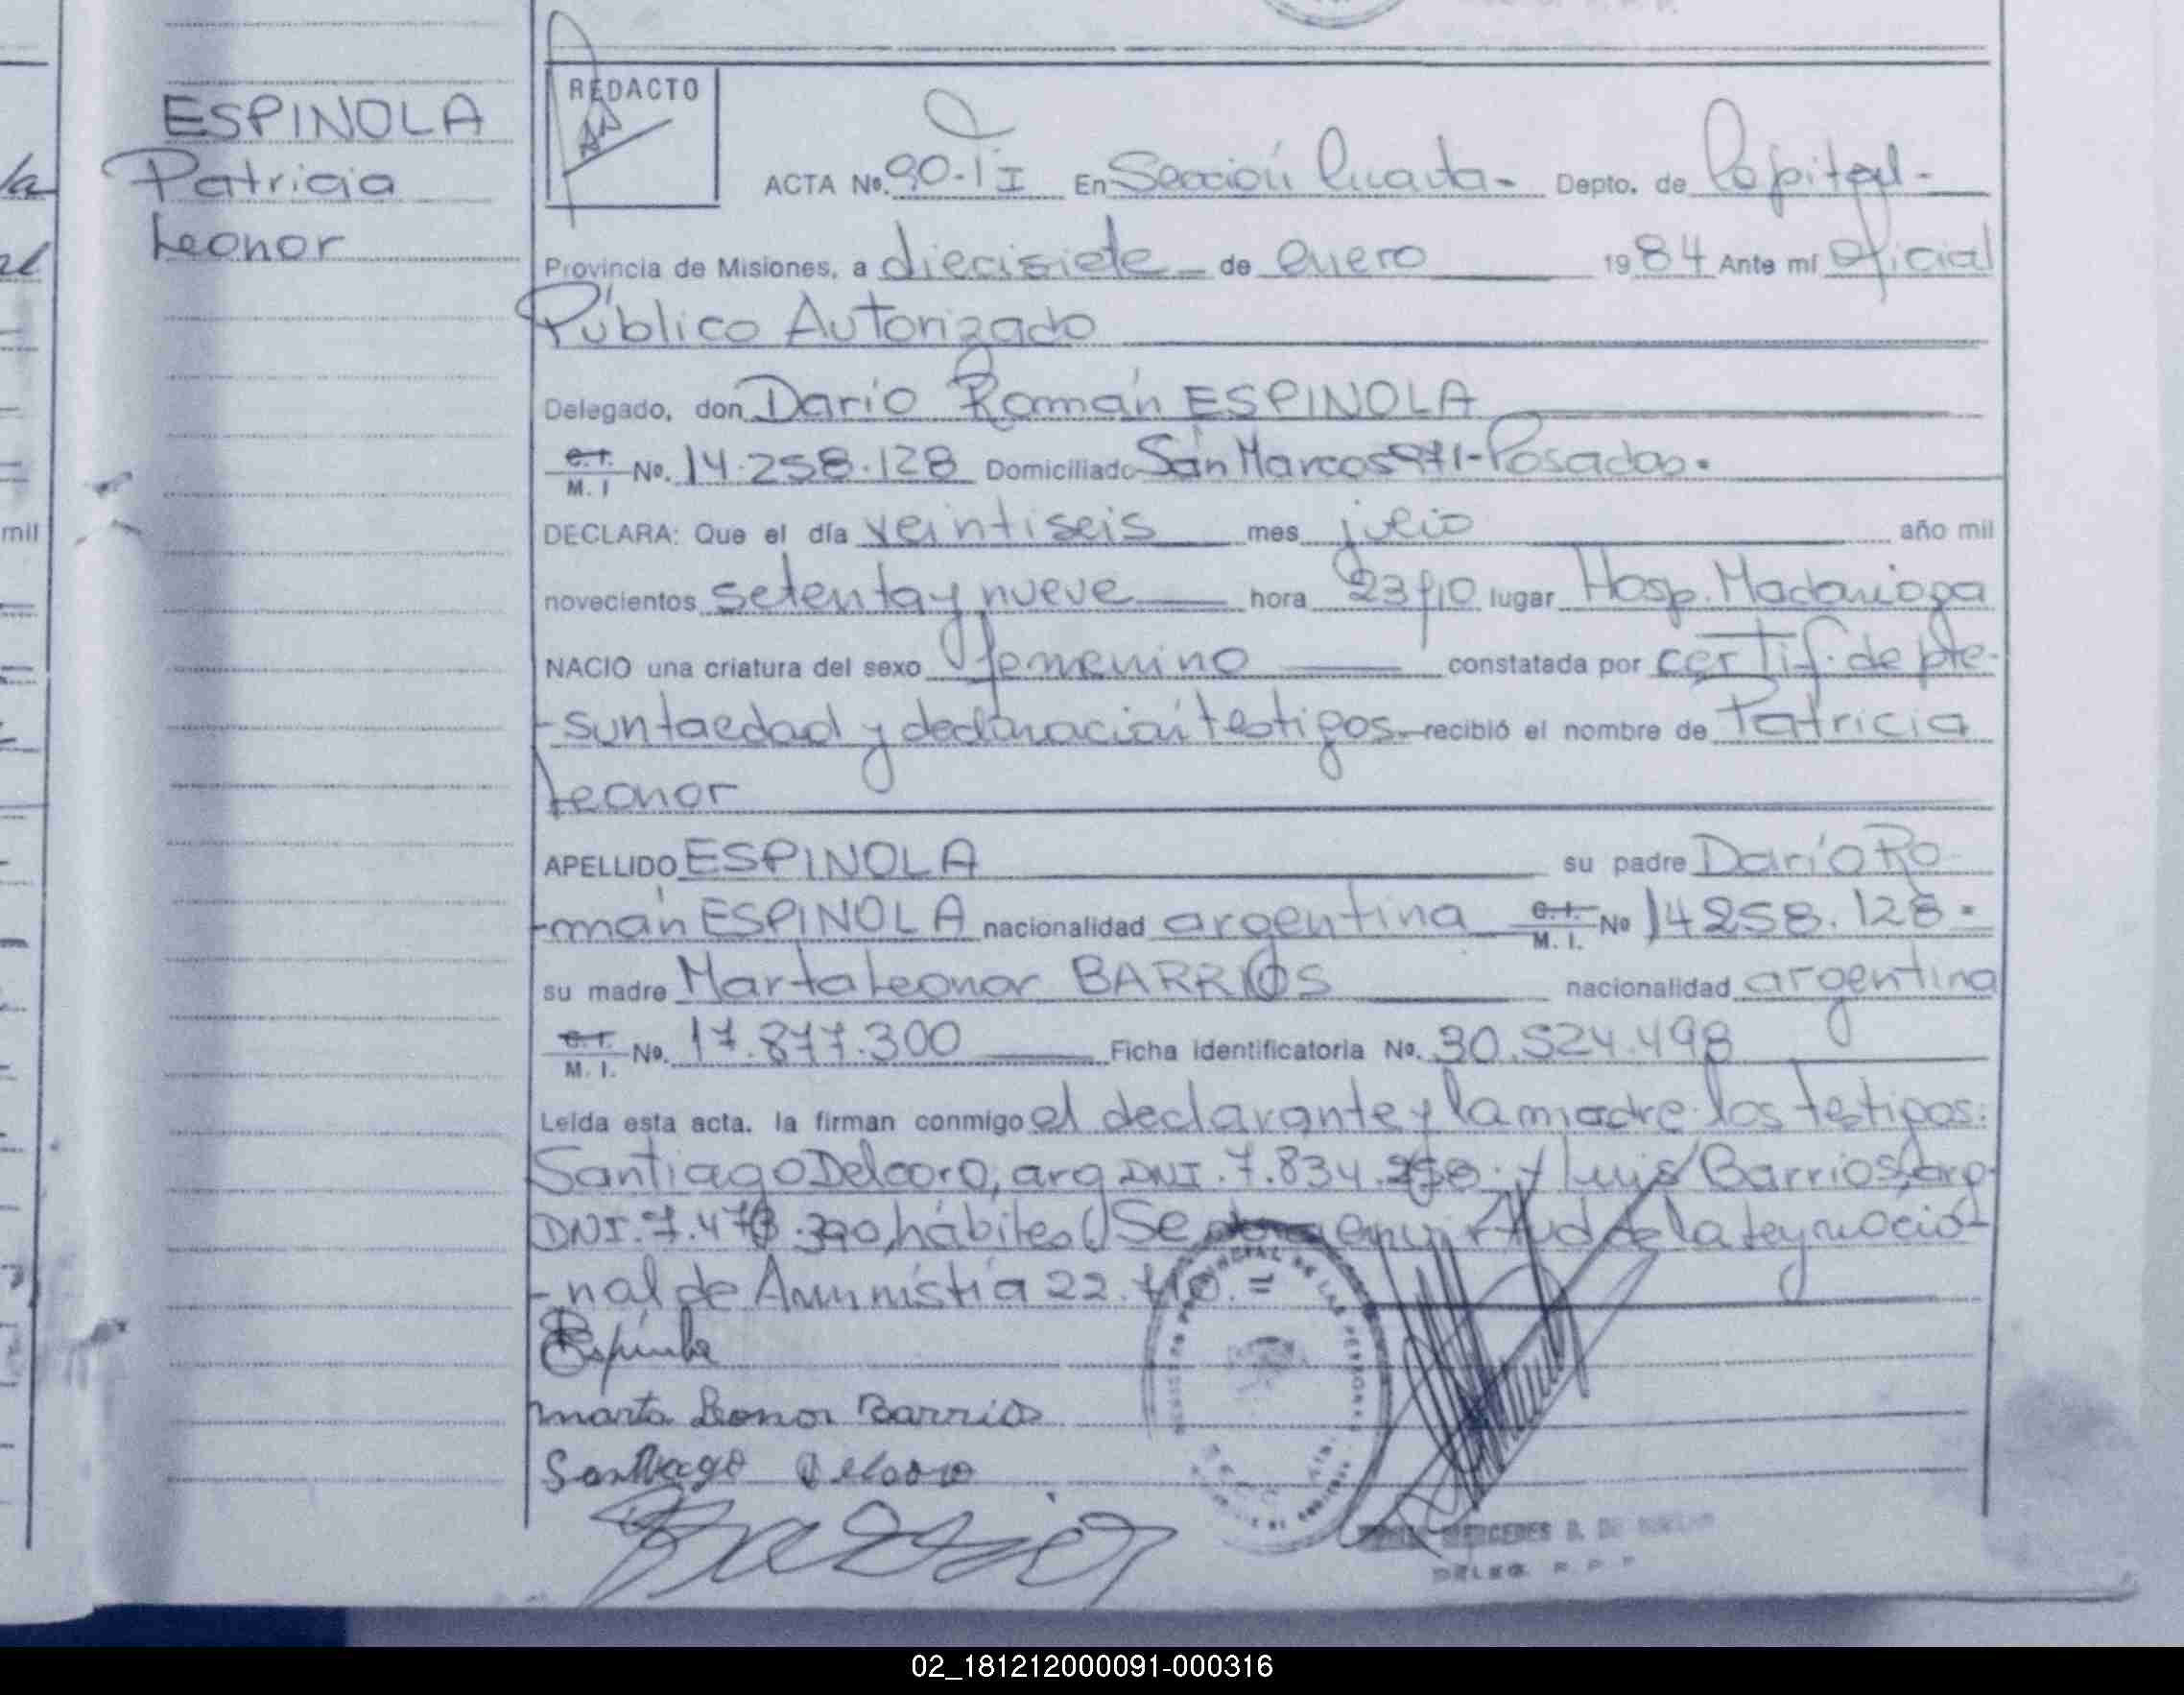 ESPINOLA
Patricia
Leonor
REDACTO
ACTA No. 90-TI En Sección Cuarta- Depto. de Capital-
Provincia de Misiones, a diecisiete de enero 1984 Ante mí Oficial
Público Autorizado
Delegado, don Darío Román ESPINOLA
C.I. M. I No. 14.258.128 Domiciliado San Marcos 971-Posadas.
DECLARA: Que el día veintiseis mes julio año mil
novecientos setenta y nueve hora 23,10 lugar Hosp. Madariaga
NACIO una criatura del sexo femenino constatada por certif. de pre-
-sunta edad y declaración testigos recibió el nombre de Patricia
Leonor
APELLIDO ESPINOLA su padre Darío Ro
-mán ESPINOLA nacionalidad argentina C.I. M. I. No 14258.128.
su madre Marta Leonor BARRIOS nacionalidad argentina
C.I. M. I. No. 17.877.300 Ficha identificatoria No. 30.524.498
Leida esta acta. la firman conmigo el declarante y la madre. los testigos:
Santiago Delcoro, arg DNI. 7.834. y Luis Barrios, arg.
DNI. 7.47 .390, hábiles Se en virtud de la Ley nacio-
-nal de Amnistía 22.
Espínola
Marta Leonor Barrios
Santiago Delcoro
Barrios
PROVINCIAL DE LAS PERSONAS
MERCEDES B. DE
DELEG. R. P. P.
mil
02_181212000091-000316